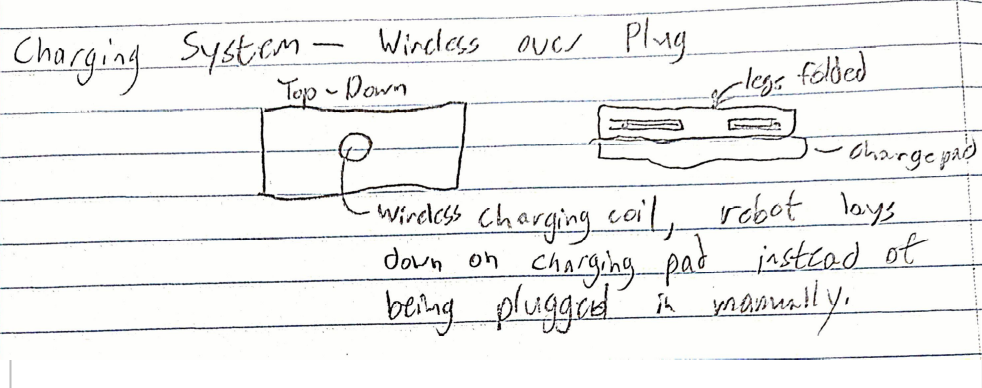 Charging System — Wireless over Plug
Top-Down
legs folded
charge pad
wireless charging coil, robot lays
down on charging pad instead of
being plugged in manually.